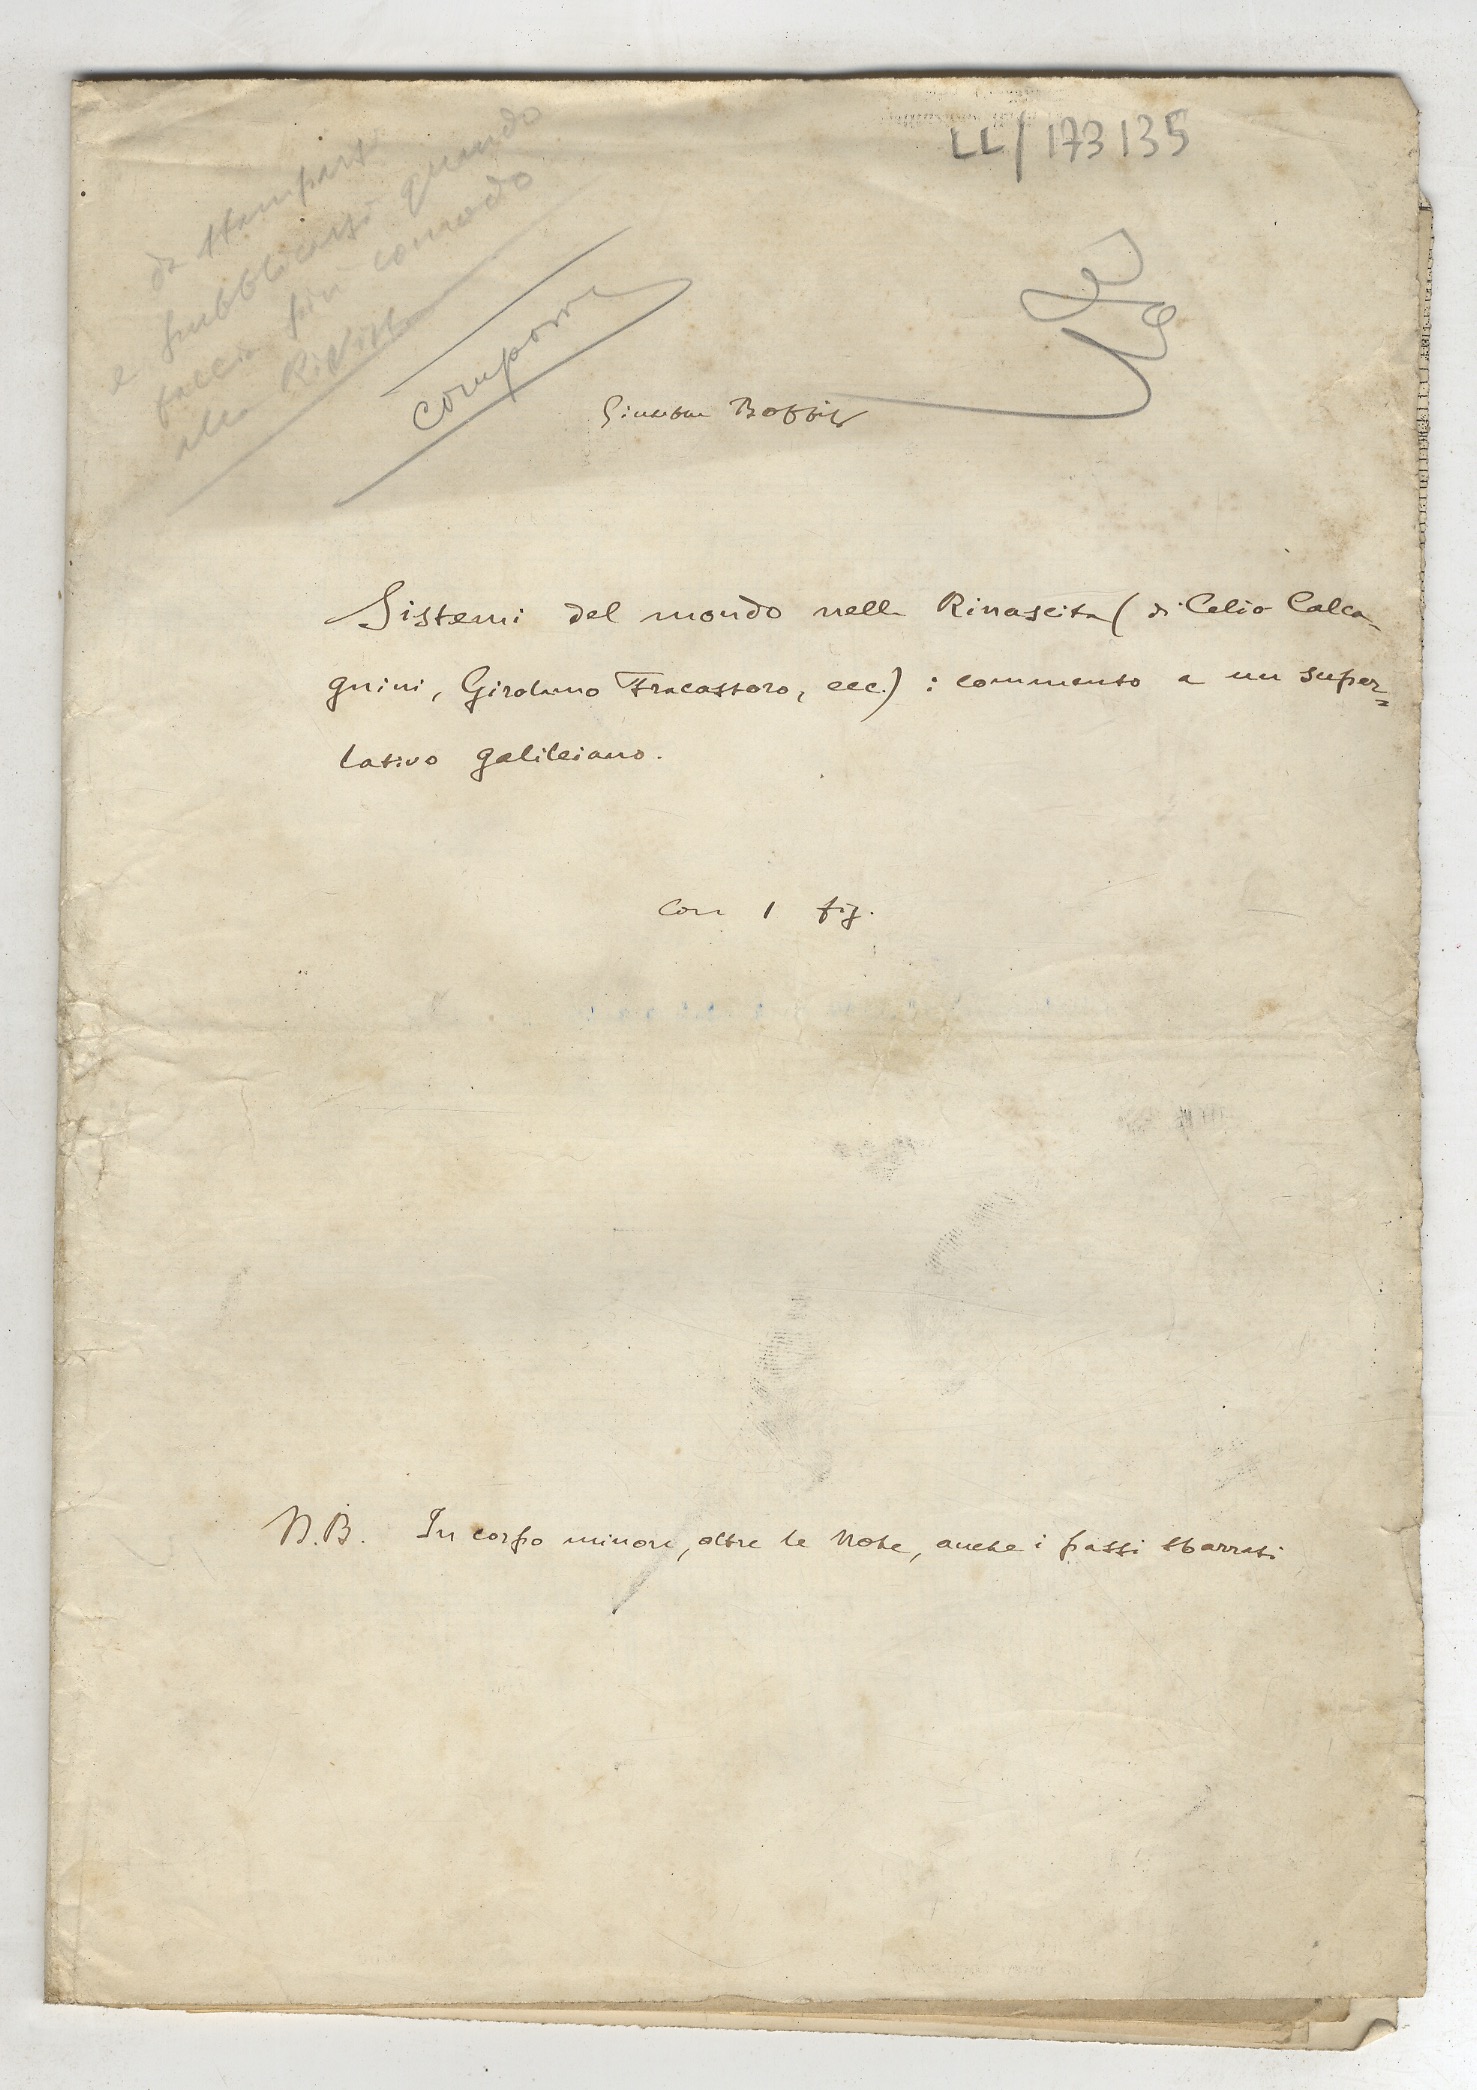 LL/173135
da stamparsi
e pubblicarsi quando
faccia più comodo
alla Rivista
comporre
Giuseppe Boffito
Sistemi del mondo nella Rinascita (di Celio Calca-
gnini, Girolamo Fracastoro, ecc.) : commento a un super=
lativo galileiano.
Con 1 fig.
N.B. In corpo minore, oltre le Note, anche i passi sbarrati